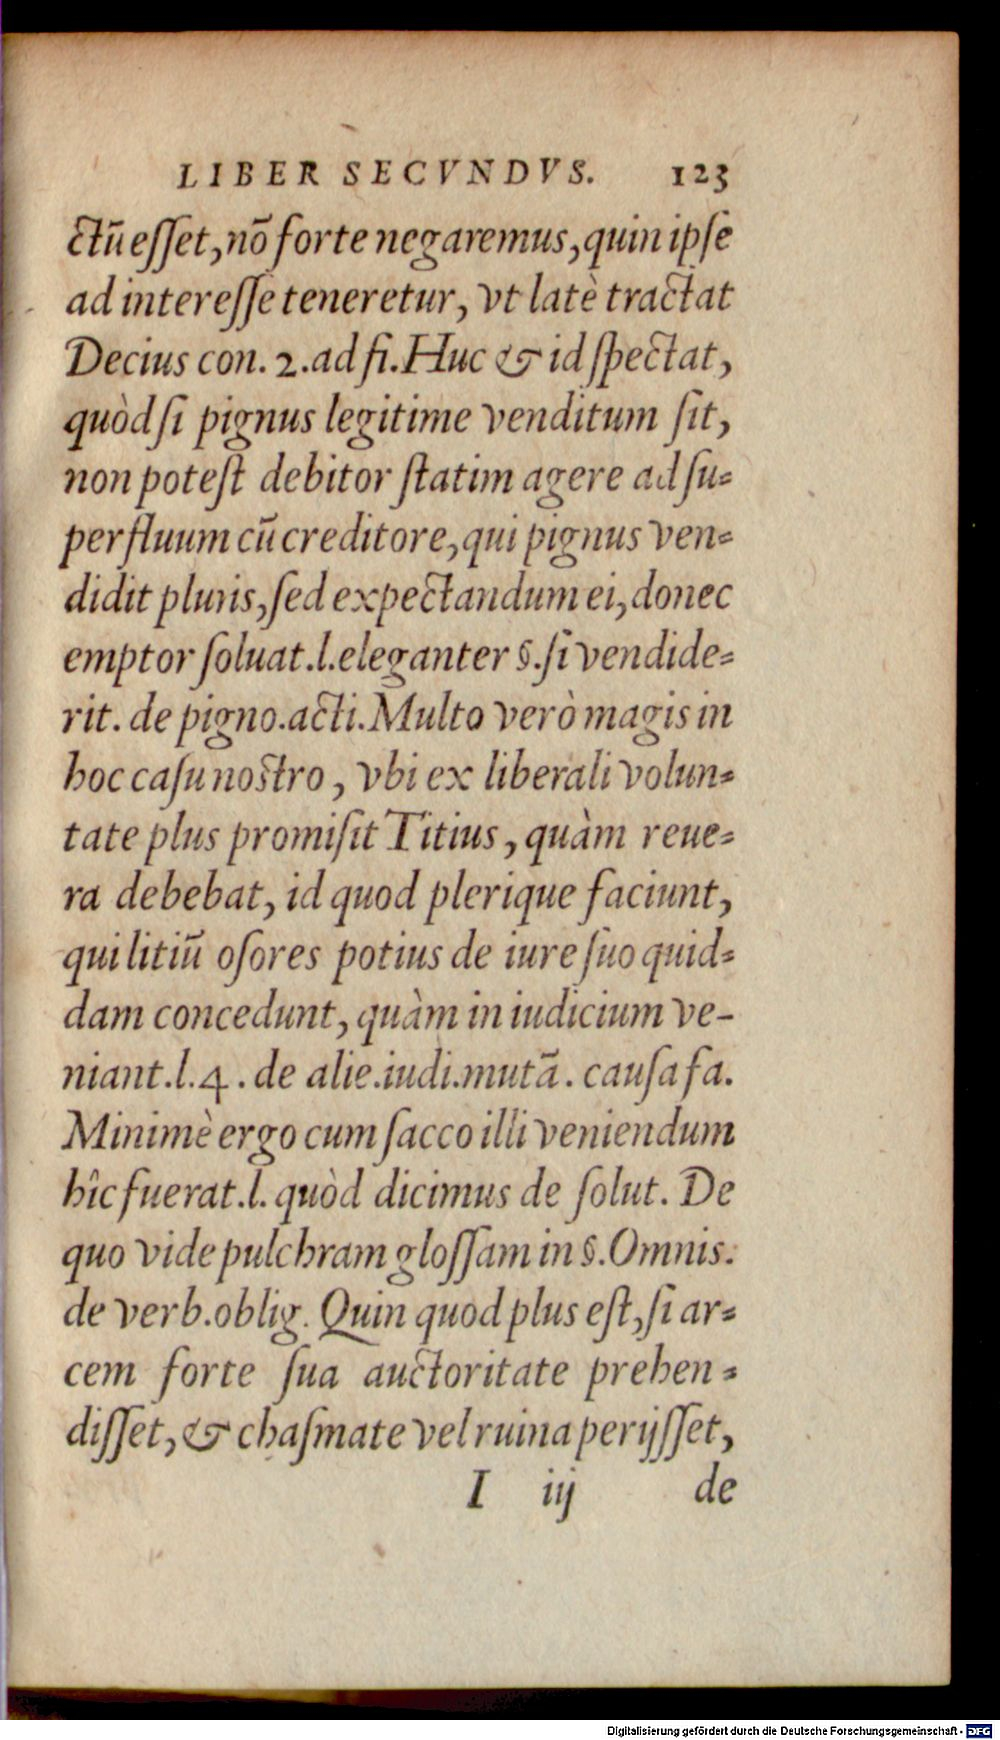 LIBER SECVNDVS. 123
ctũ esset, nõ forte negaremus, quin ipse
ad interesse teneretur, vt latè tractat
Decius con. 2. ad fi. Huc & id spectat,
quòd si pignus legitime venditum sit,
non potest debitor statim agere ad su-
perfluum cũ creditore, qui pignus ven-
didit pluris, sed expectandum ei, donec
emptor soluat. l. eleganter §. si vendide-
rit. de pigno. acti. Multo verò magis in
hoc casu nostro, vbi ex liberali volun-
tate plus promisit Titius, quàm reue-
ra debebat, id quod plerique faciunt,
qui litiũ osores potius de iure suo quid-
dam concedunt, quàm in iudicium ve-
niant. l. 4. de alie. iudi. mutã. causa fa.
Minimè ergo cum sacco illi veniendum
hîc fuerat. l. quòd dicimus de solut. De
quo vide pulchram glossam in §. Omnis.
de verb. oblig. Quin quod plus est, si ar-
cem forte sua auctoritate prehen-
disset, & chasmate vel ruina perijsset,
I iij de
Digitalisierung gefördert durch die Deutsche Forschungsgemeinschaft - DFG